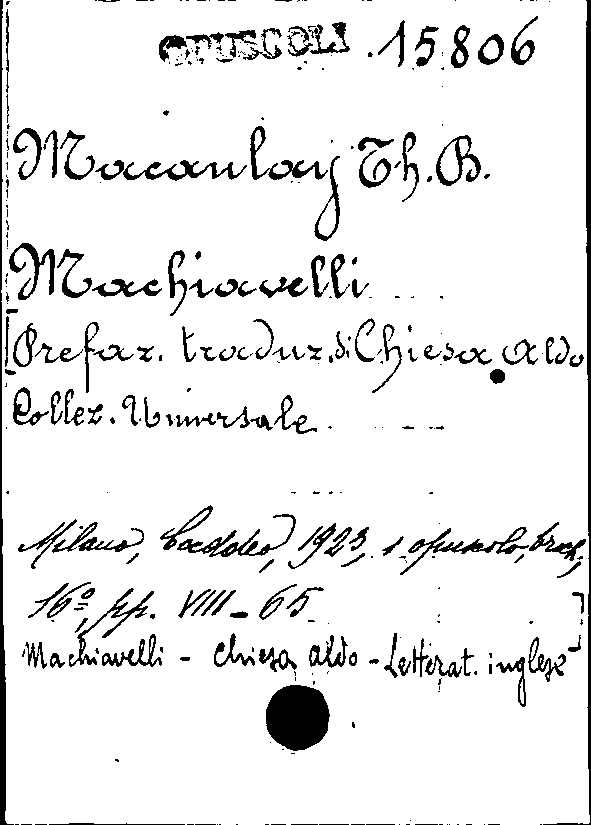 OPUSCOLI 15806
Macaulay Th. B.
Machiavelli
[Prefaz. traduz. di Chiesa Aldo
Collez. Universale
Milano, Caddeo, 1923, 1 opuscolo, broch,
16º, pp. VIII-65
Machiavelli - Chiesa Aldo - Letterat. inglese]